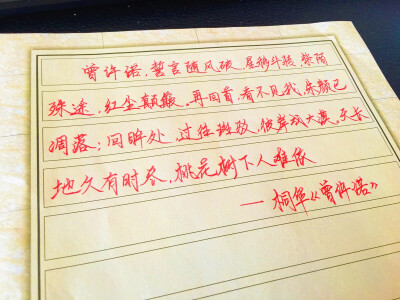 曾许诺,誓言随风破,星移斗转,紫陌
殊途,红尘颠簸,再回首,看不见我,朱颜已
凋落,回眸处,过往斑驳,彼岸成大漠,天长
地久有时尽,桃花树下人难依
——桐华《曾许诺》